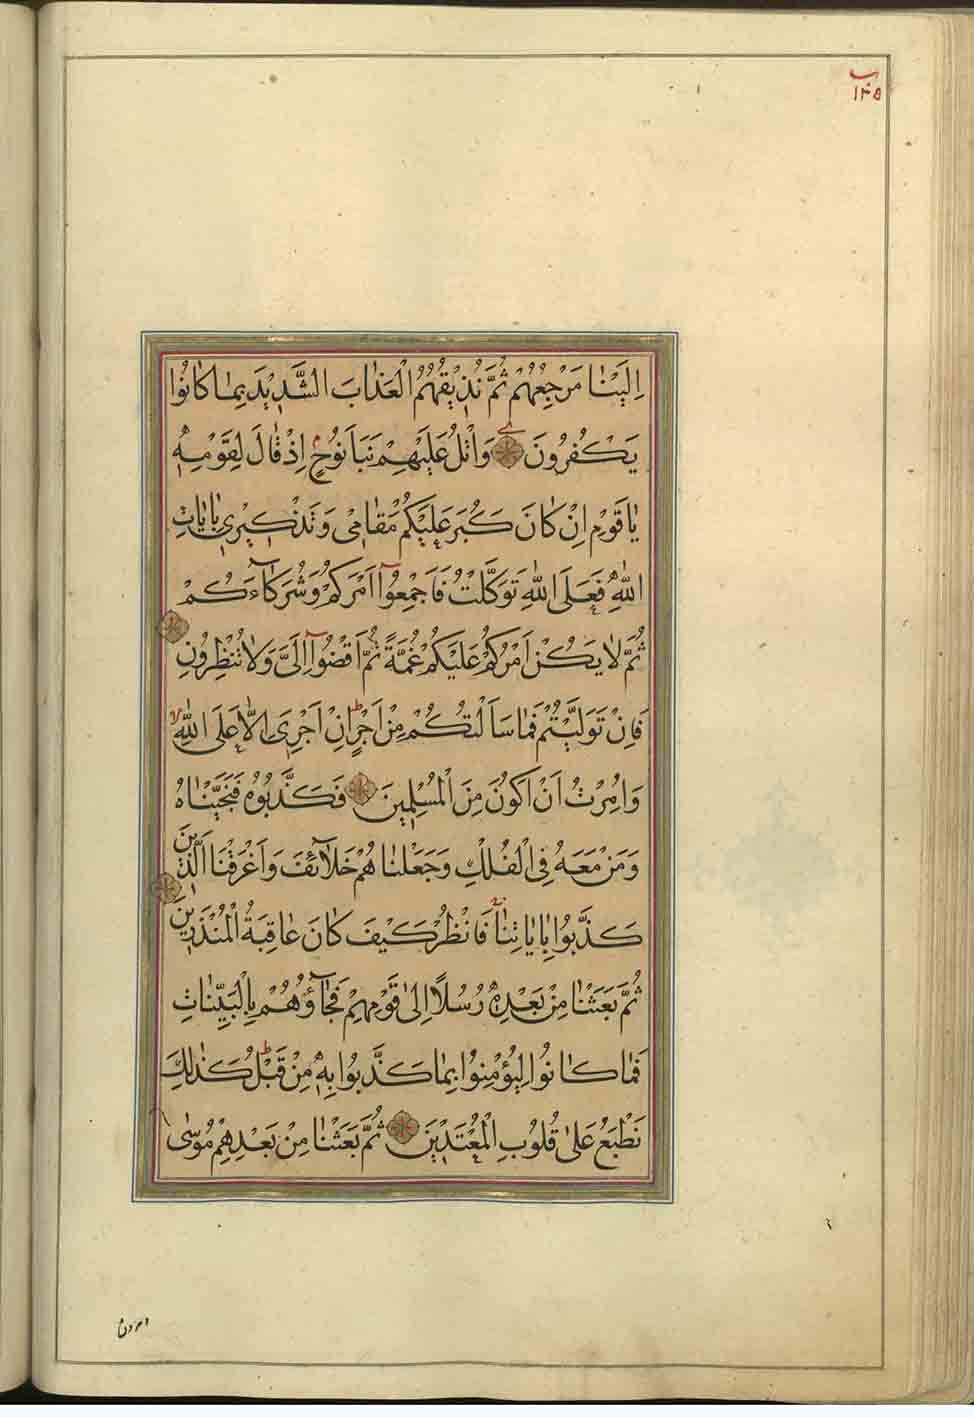 ١٢٥
اِلَيْنٰا مَرْجِعُهُمْ ثُمَّ نُذيقُهُمُ الْعَذٰابَ الشَّديدَ بِمٰا كٰانُوا
يَكْفُرُونَ وَاتْلُ عَلَيْهِمْ نَبَاَ نُوحٍ اِذْ قٰالَ لِقَوْمِهٖ
يٰا قَوْمِ اِنْ كٰانَ كَبُرَ عَلَيْكُمْ مَقٰامى وَتَذْكيرى بِاٰيٰاتِ
اللّٰهِ فَعَلَى اللّٰهِ تَوَكَّلْتُ فَاَجْمِعُوٓا اَمْرَكُمْ وَشُرَكٰٓاءَكُمْ
ثُمَّ لٰا يَكُنْ اَمْرُكُمْ عَلَيْكُمْ غُمَّةً ثُمَّ اقْضُوٓا اِلَىَّ وَلٰا تُنْظِرُونِ
فَاِنْ تَوَلَّيْتُمْ فَمٰا سَاَلْتُكُمْ مِنْ اَجْرٍ اِنْ اَجْرِىَ اِلّٰا عَلَى اللّٰهِ
وَاُمِرْتُ اَنْ اَكُونَ مِنَ الْمُسْلِمينَ فَكَذَّبُوهُ فَنَجَّيْنٰاهُ
وَمَنْ مَعَهُ فِى الْفُلْكِ وَجَعَلْنٰاهُمْ خَلٰٓائِفَ وَاَغْرَقْنَا الَّذينَ
كَذَّبُوا بِاٰيٰاتِنٰا فَانْظُرْ كَيْفَ كٰانَ عٰاقِبَةُ الْمُنْذَرينَ
ثُمَّ بَعَثْنٰا مِنْ بَعْدِهٖ رُسُلًا اِلىٰ قَوْمِهِمْ فَجٰٓاؤُهُمْ بِالْبَيِّنٰاتِ
فَمٰا كٰانُوا لِيُؤْمِنُوا بِمٰا كَذَّبُوا بِهٖ مِنْ قَبْلُ كَذٰلِكَ
نَطْبَعُ عَلىٰ قُلُوبِ الْمُعْتَدينَ ثُمَّ بَعَثْنٰا مِنْ بَعْدِهِمْ مُوسٰى